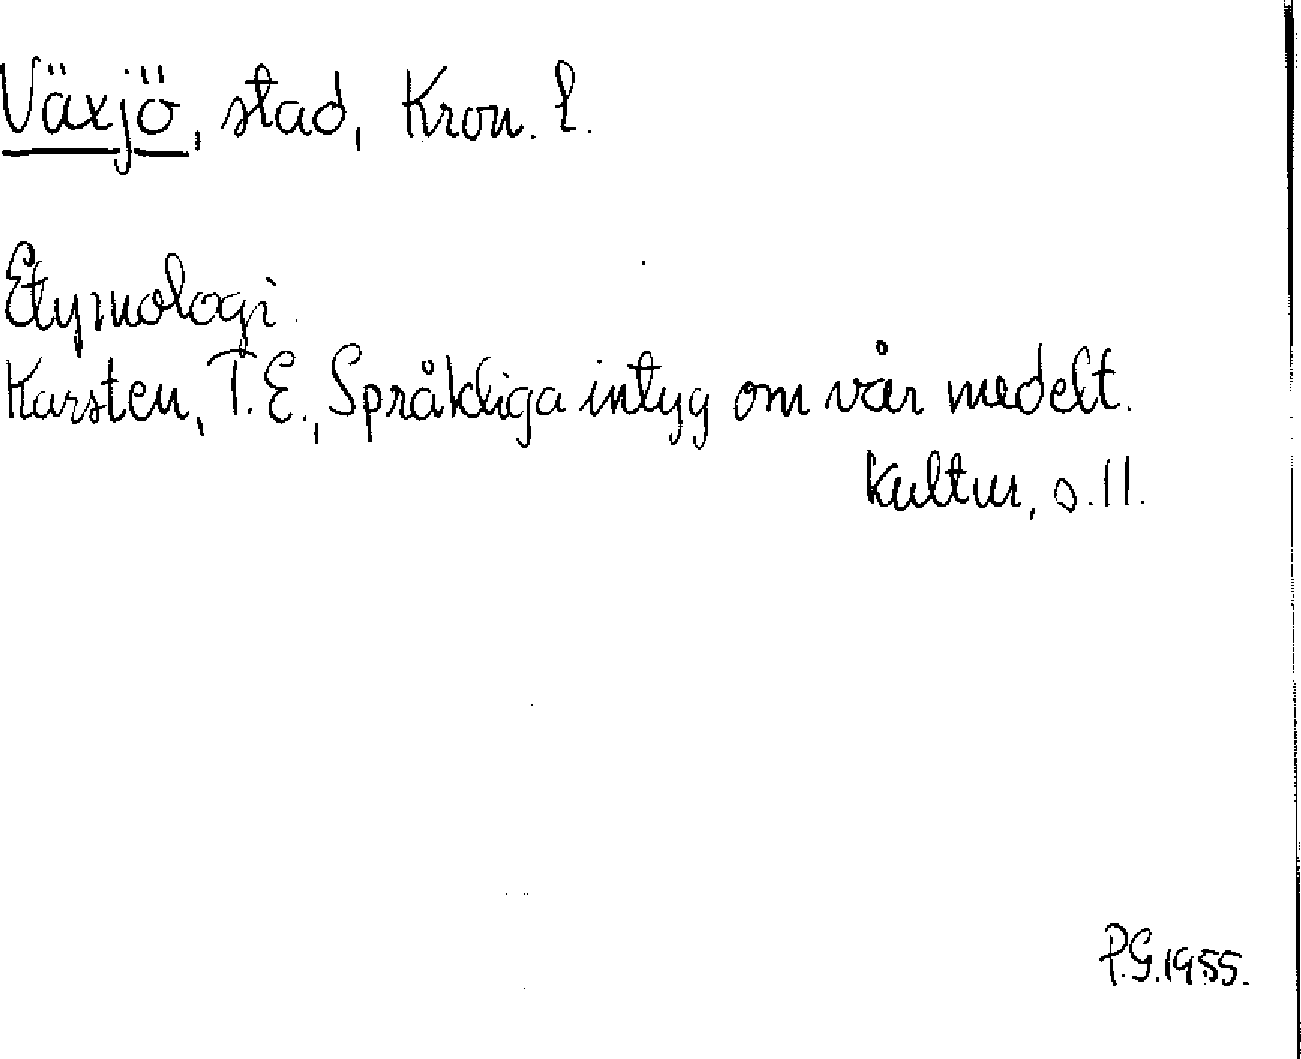 Växjö, stad, Kron. l.
Etymologi.
Karsten, T.E., Språkliga intyg om vår medelt.
kultur, s. 11.
P.G. 1955.